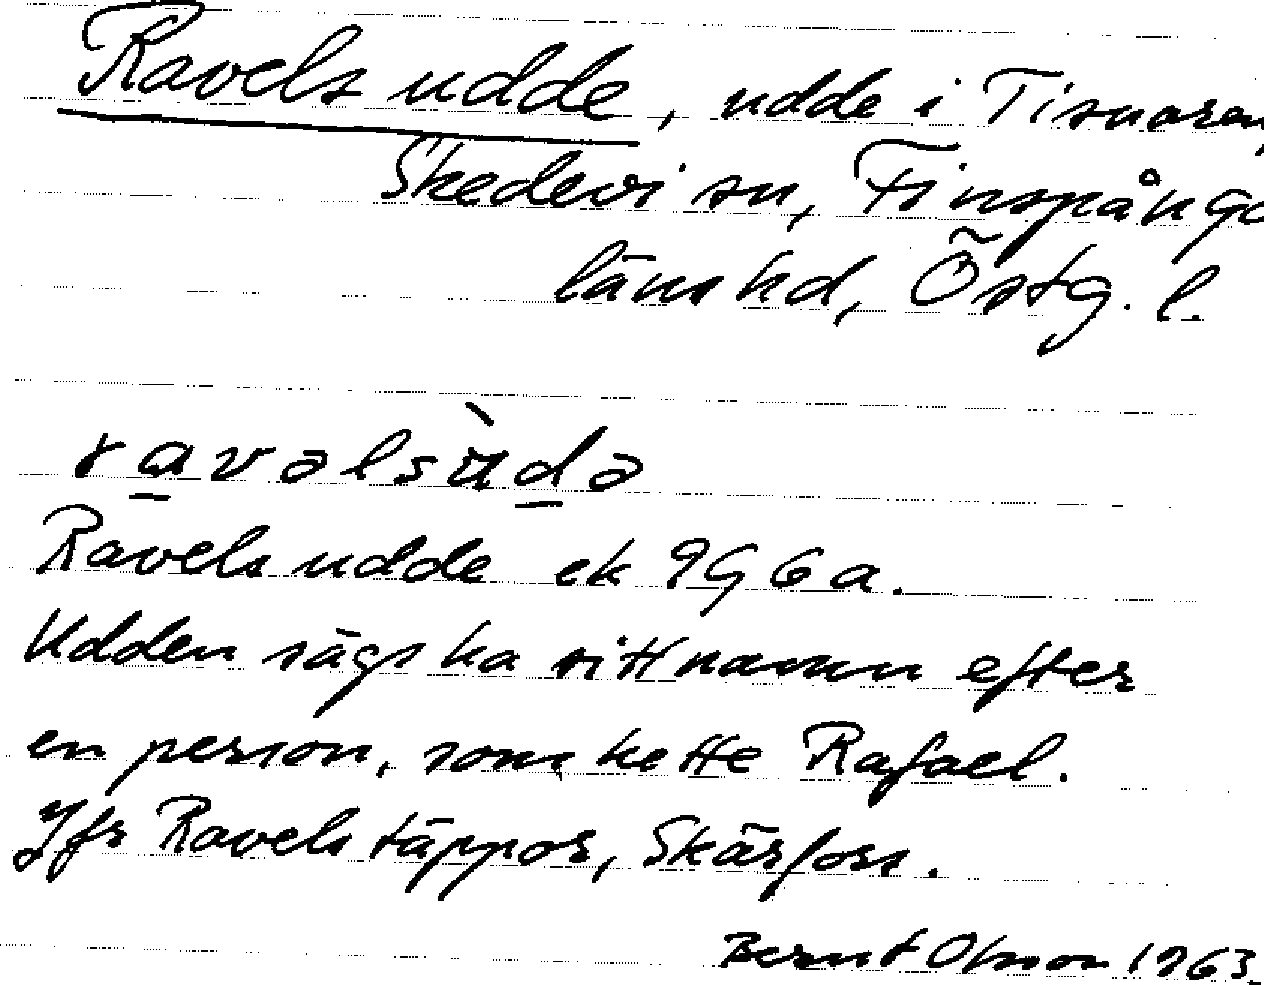 Ravels udde, udde i Tisnaren,
Skedevi sn, Finspånga
läns hd, Östg. l.
ravəlsùdə
Ravels udde ek 9G6a.
Udden sägs ha sitt namn efter
en person, som hette Rafael.
Jfr Ravels täppor, Skärfors.
Bernt Olsson 1963.